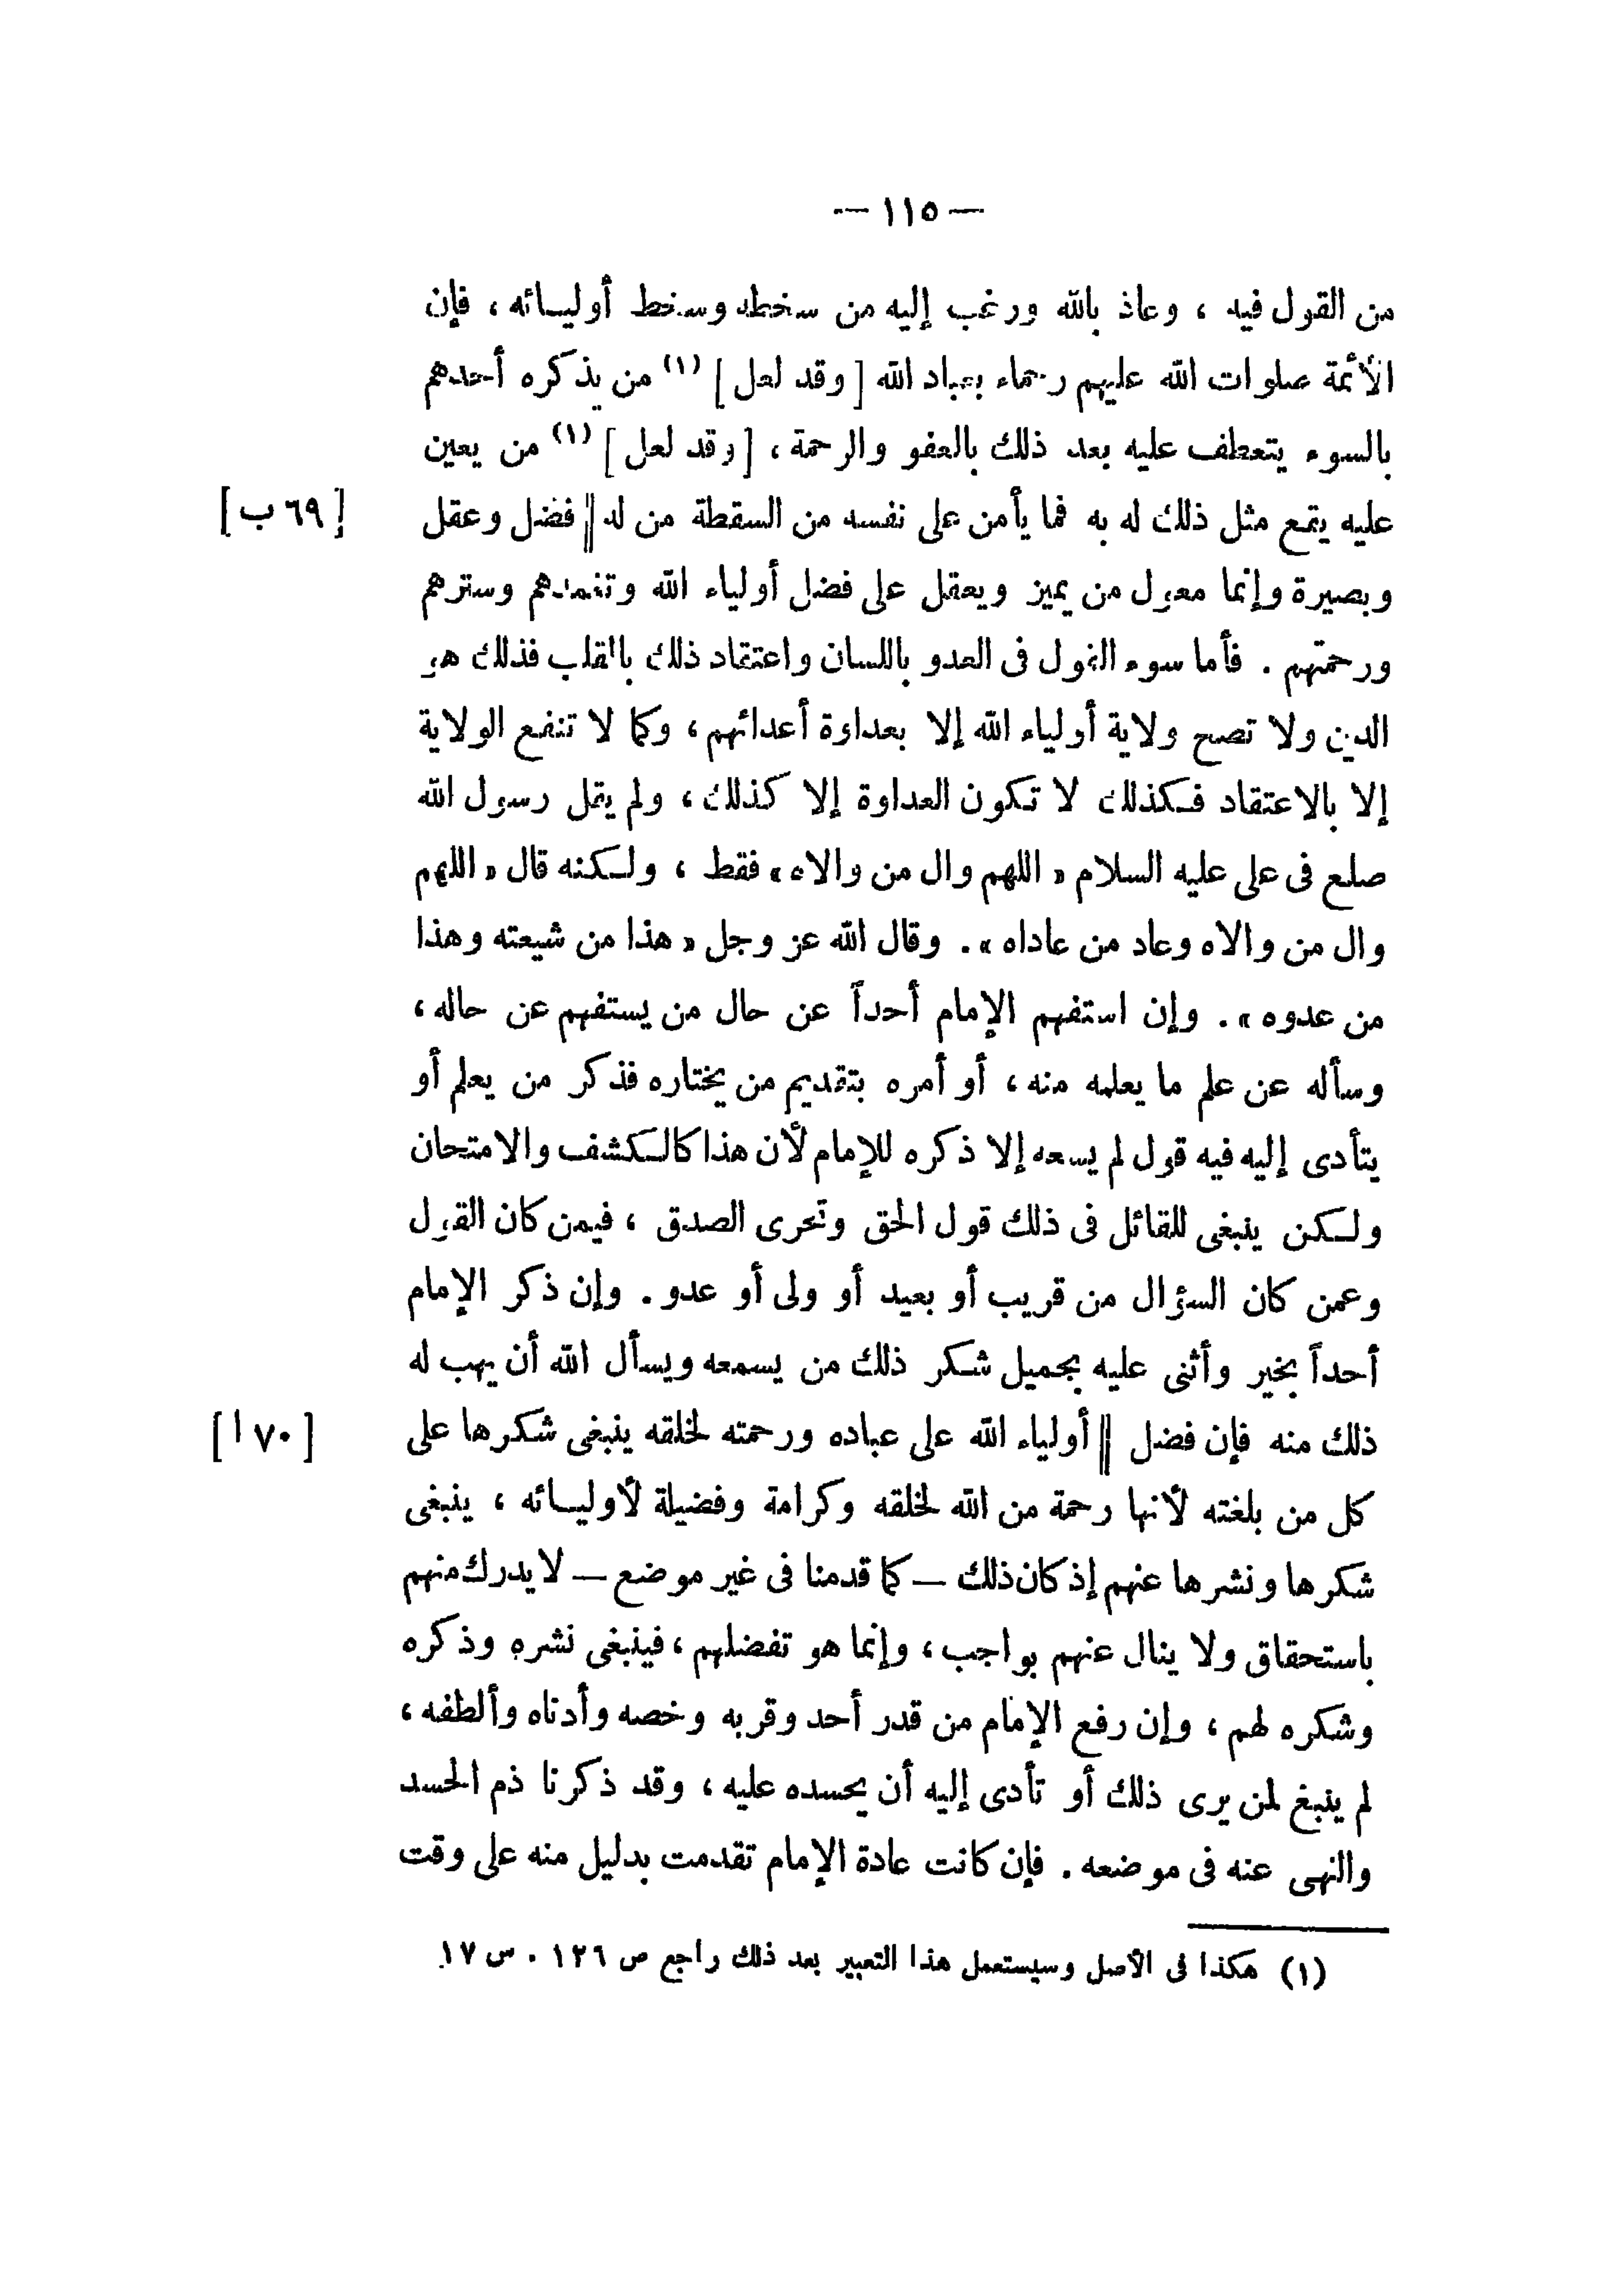 — ١١٥ —
من القول فيه ، وعاذ بالله ورغب إليه من سخطه وسخط أوليائه ، فإن
الأئمة صلوات الله عليهم رحماء بعباد الله [ وقد لعل ] (١) من يذكره أحدهم
بالسوء يتعطف عليه بعد ذلك بالعفو والرحمة ، [ وقد لعل ] (١) من يعين
عليه يقع مثل ذلك له به فما يأمن على نفسه من السقطة من له || فضل وعقل [ ٦٩ ب ]
وبصيرة وإنما معول من يميز ويعقل على فضل أولياء الله وتغمدهم وسترهم
ورحمتهم . فأما سوء القول فى العدو باللسان واعتقاد ذلك بالقلب فذلك هو
الدين ولا تصح ولاية أولياء الله إلا بعداوة أعدائهم ، وكما لا تنفع الولاية
إلا بالاعتقاد فكذلك لا تكون العداوة إلا كذلك ، ولم يقل رسول الله
صلع فى على عليه السلام « اللهم وال من والاه » فقط ، ولكنه قال « اللهم
وال من والاه وعاد من عاداه » . وقال الله عز وجل « هذا من شيعته وهذا
من عدوه » . وإن استفهم الإمام أحداً عن حال من يستفهم عن حاله ،
وسأله عن علم ما يعلمه منه ، أو أمره بتقديم من يختاره فذكر من يعلم أو
يتأدى إليه فيه قول لم يسعه إلا ذكره للإمام لأن هذا كالكشف والامتحان
ولكن ينبغى للقائل فى ذلك قول الحق وتحرى الصدق ، فيمن كان القول
وعمن كان السؤال من قريب أو بعيد أو ولى أو عدو . وإن ذكر الإمام
أحداً بخير وأثنى عليه بجميل شكر ذلك من يسمعه ويسأل الله أن يهب له
ذلك منه فإن فضل || أولياء الله على عباده ورحمته لخلقه ينبغى شكرها على [ ٧٠ ا ]
كل من بلغته لأنها رحمة من الله لخلقه وكرامة وفضيلة لأوليائه ، ينبغى
شكرها ونشرها عنهم إذ كان ذلك — كما قدمنا فى غير موضع — لا يدرك منهم
باستحقاق ولا ينال عنهم بواجب ، وإنما هو تفضلهم ، فينبغى نشره وذكره
وشكره لهم ، وإن رفع الإمام من قدر أحد وقربه وخصه وأدناه وألطفه ،
لم ينبغ لمن يرى ذلك أو تأدى إليه أن يحسده عليه ، وقد ذكرنا ذم الحسد
والنهى عنه فى موضعه . فإن كانت عادة الإمام تقدمت بدليل منه على وقت
(١) هكذا فى الأصل وسيستعمل هذا التعبير بعد ذلك راجع ص ١٢٦ . س ١٧